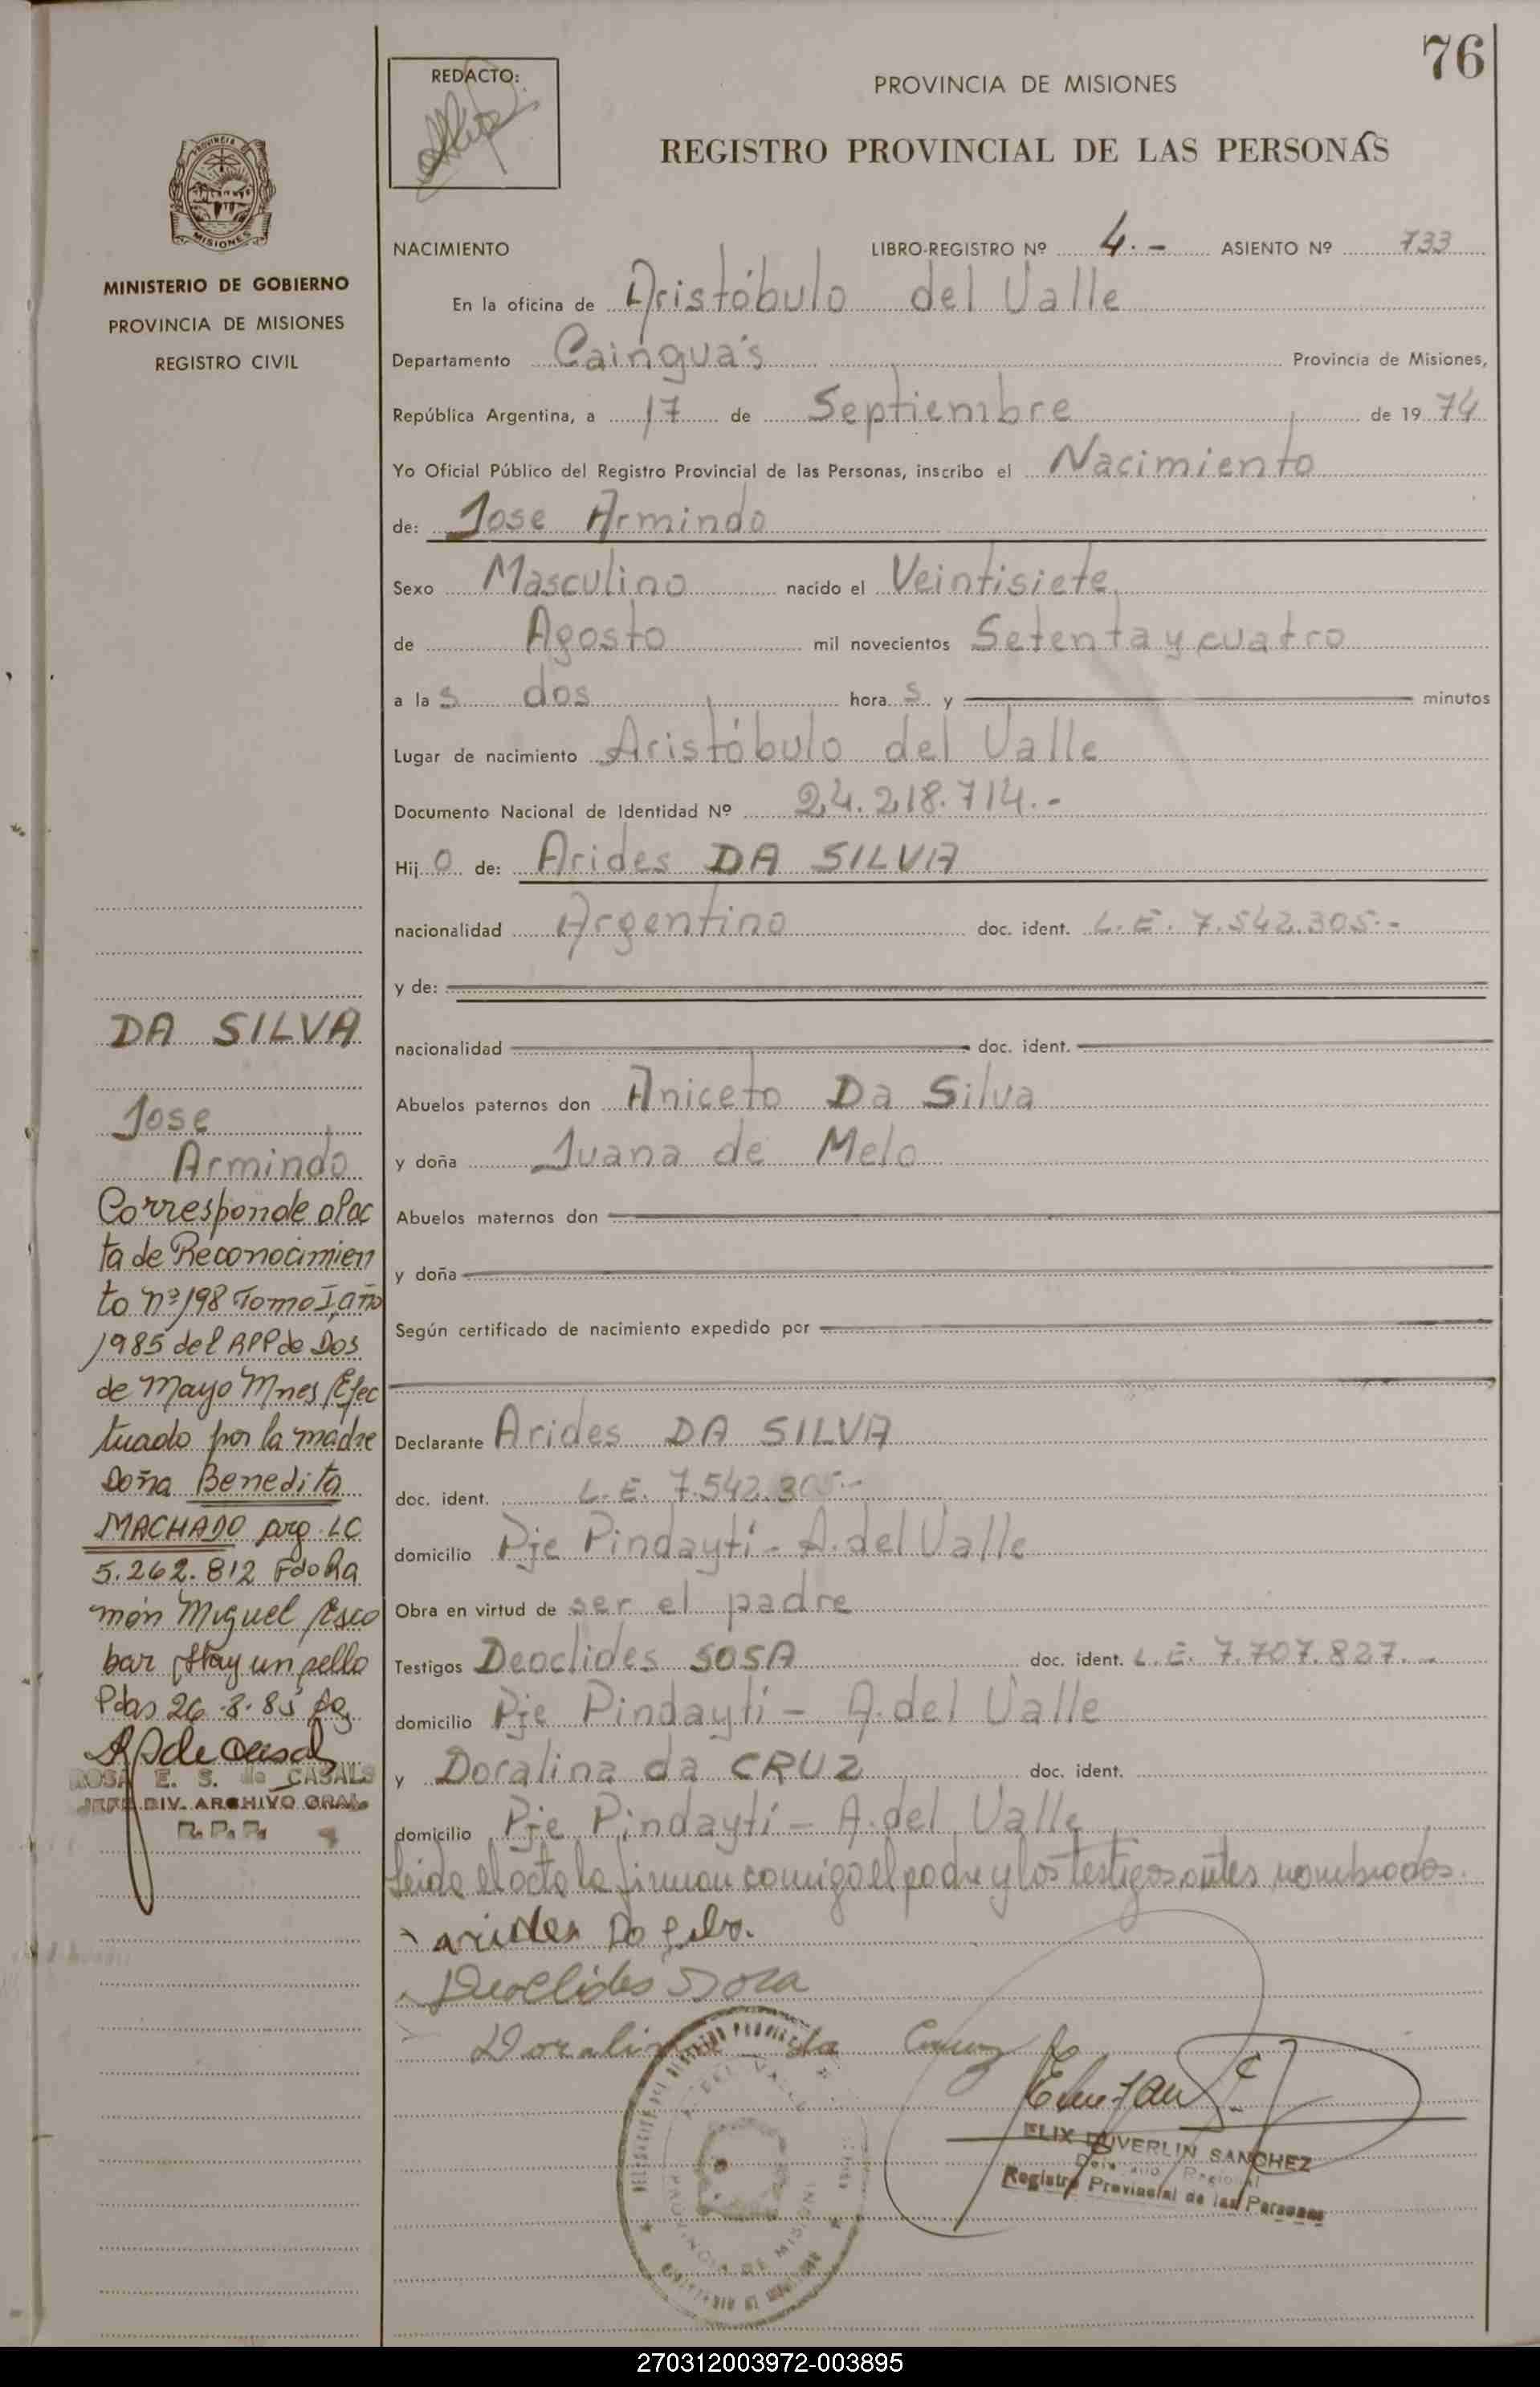 76
REDACTO:
PROVINCIA DE MISIONES
REGISTRO PROVINCIAL DE LAS PERSONAS
PROVINCIA
MISIONES
MINISTERIO DE GOBIERNO
PROVINCIA DE MISIONES
REGISTRO CIVIL
NACIMIENTO LIBRO-REGISTRO Nº 4.- ASIENTO Nº 733
En la oficina de Aristóbulo del Valle
Departamento Cainguás Provincia de Misiones,
República Argentina, a 17 de Septiembre de 1974
Yo Oficial Público del Registro Provincial de las Personas, inscribo el Nacimiento
de: Jose Armindo
Sexo Masculino nacido el Veintisiete
de Agosto mil novecientos Setenta y cuatro
a las dos horas y minutos
Lugar de nacimiento Aristóbulo del Valle
Documento Nacional de Identidad Nº 24.218.714.-
Hijo de: Arides DA SILVA
nacionalidad Argentino doc. ident. L.E. 7.542.305.-
y de:
nacionalidad doc. ident.
Abuelos paternos don Aniceto Da Silva
y doña Juana de Melo
Abuelos maternos don
y doña
Según certificado de nacimiento expedido por
Declarante Arides DA SILVA
doc. ident. L.E. 7.542.305.-
domicilio Pje Pindaytí - A. del Valle
Obra en virtud de ser el padre
Testigos Deoclides SOSA doc. ident. L.E. 7.707.827.-
domicilio Pje Pindaytí - A. del Valle
y Doralina da CRUZ doc. ident.
domicilio Pje Pindaytí - A. del Valle
Leida el acta la firman comigo el padre y los testigos antes nombrados.
arides Da Silva.
Deoclides Sosa
Doralina da Cruz
ELIX DUVERLIN SANCHEZ
Registro Provincial de las Personas
DA SILVA
Jose
Armindo
Corresponde al ac
ta de Reconocimien
to nº 198 Tomo I, año
1985 del RPP de Dos
de Mayo Mnes, Efec
tuado por la madre
Doña Benedita
MACHADO arg. LC
5.262.812 Fdo Ra
món Miguel Esco
bar, Hay un sello
Pdas 26.8.85
ROSA E. S. de CASALS
JEFE DIV. ARCHIVO GRAL.
R. P. P.
PROVINCIA DE MISIONES
270312003972-003895